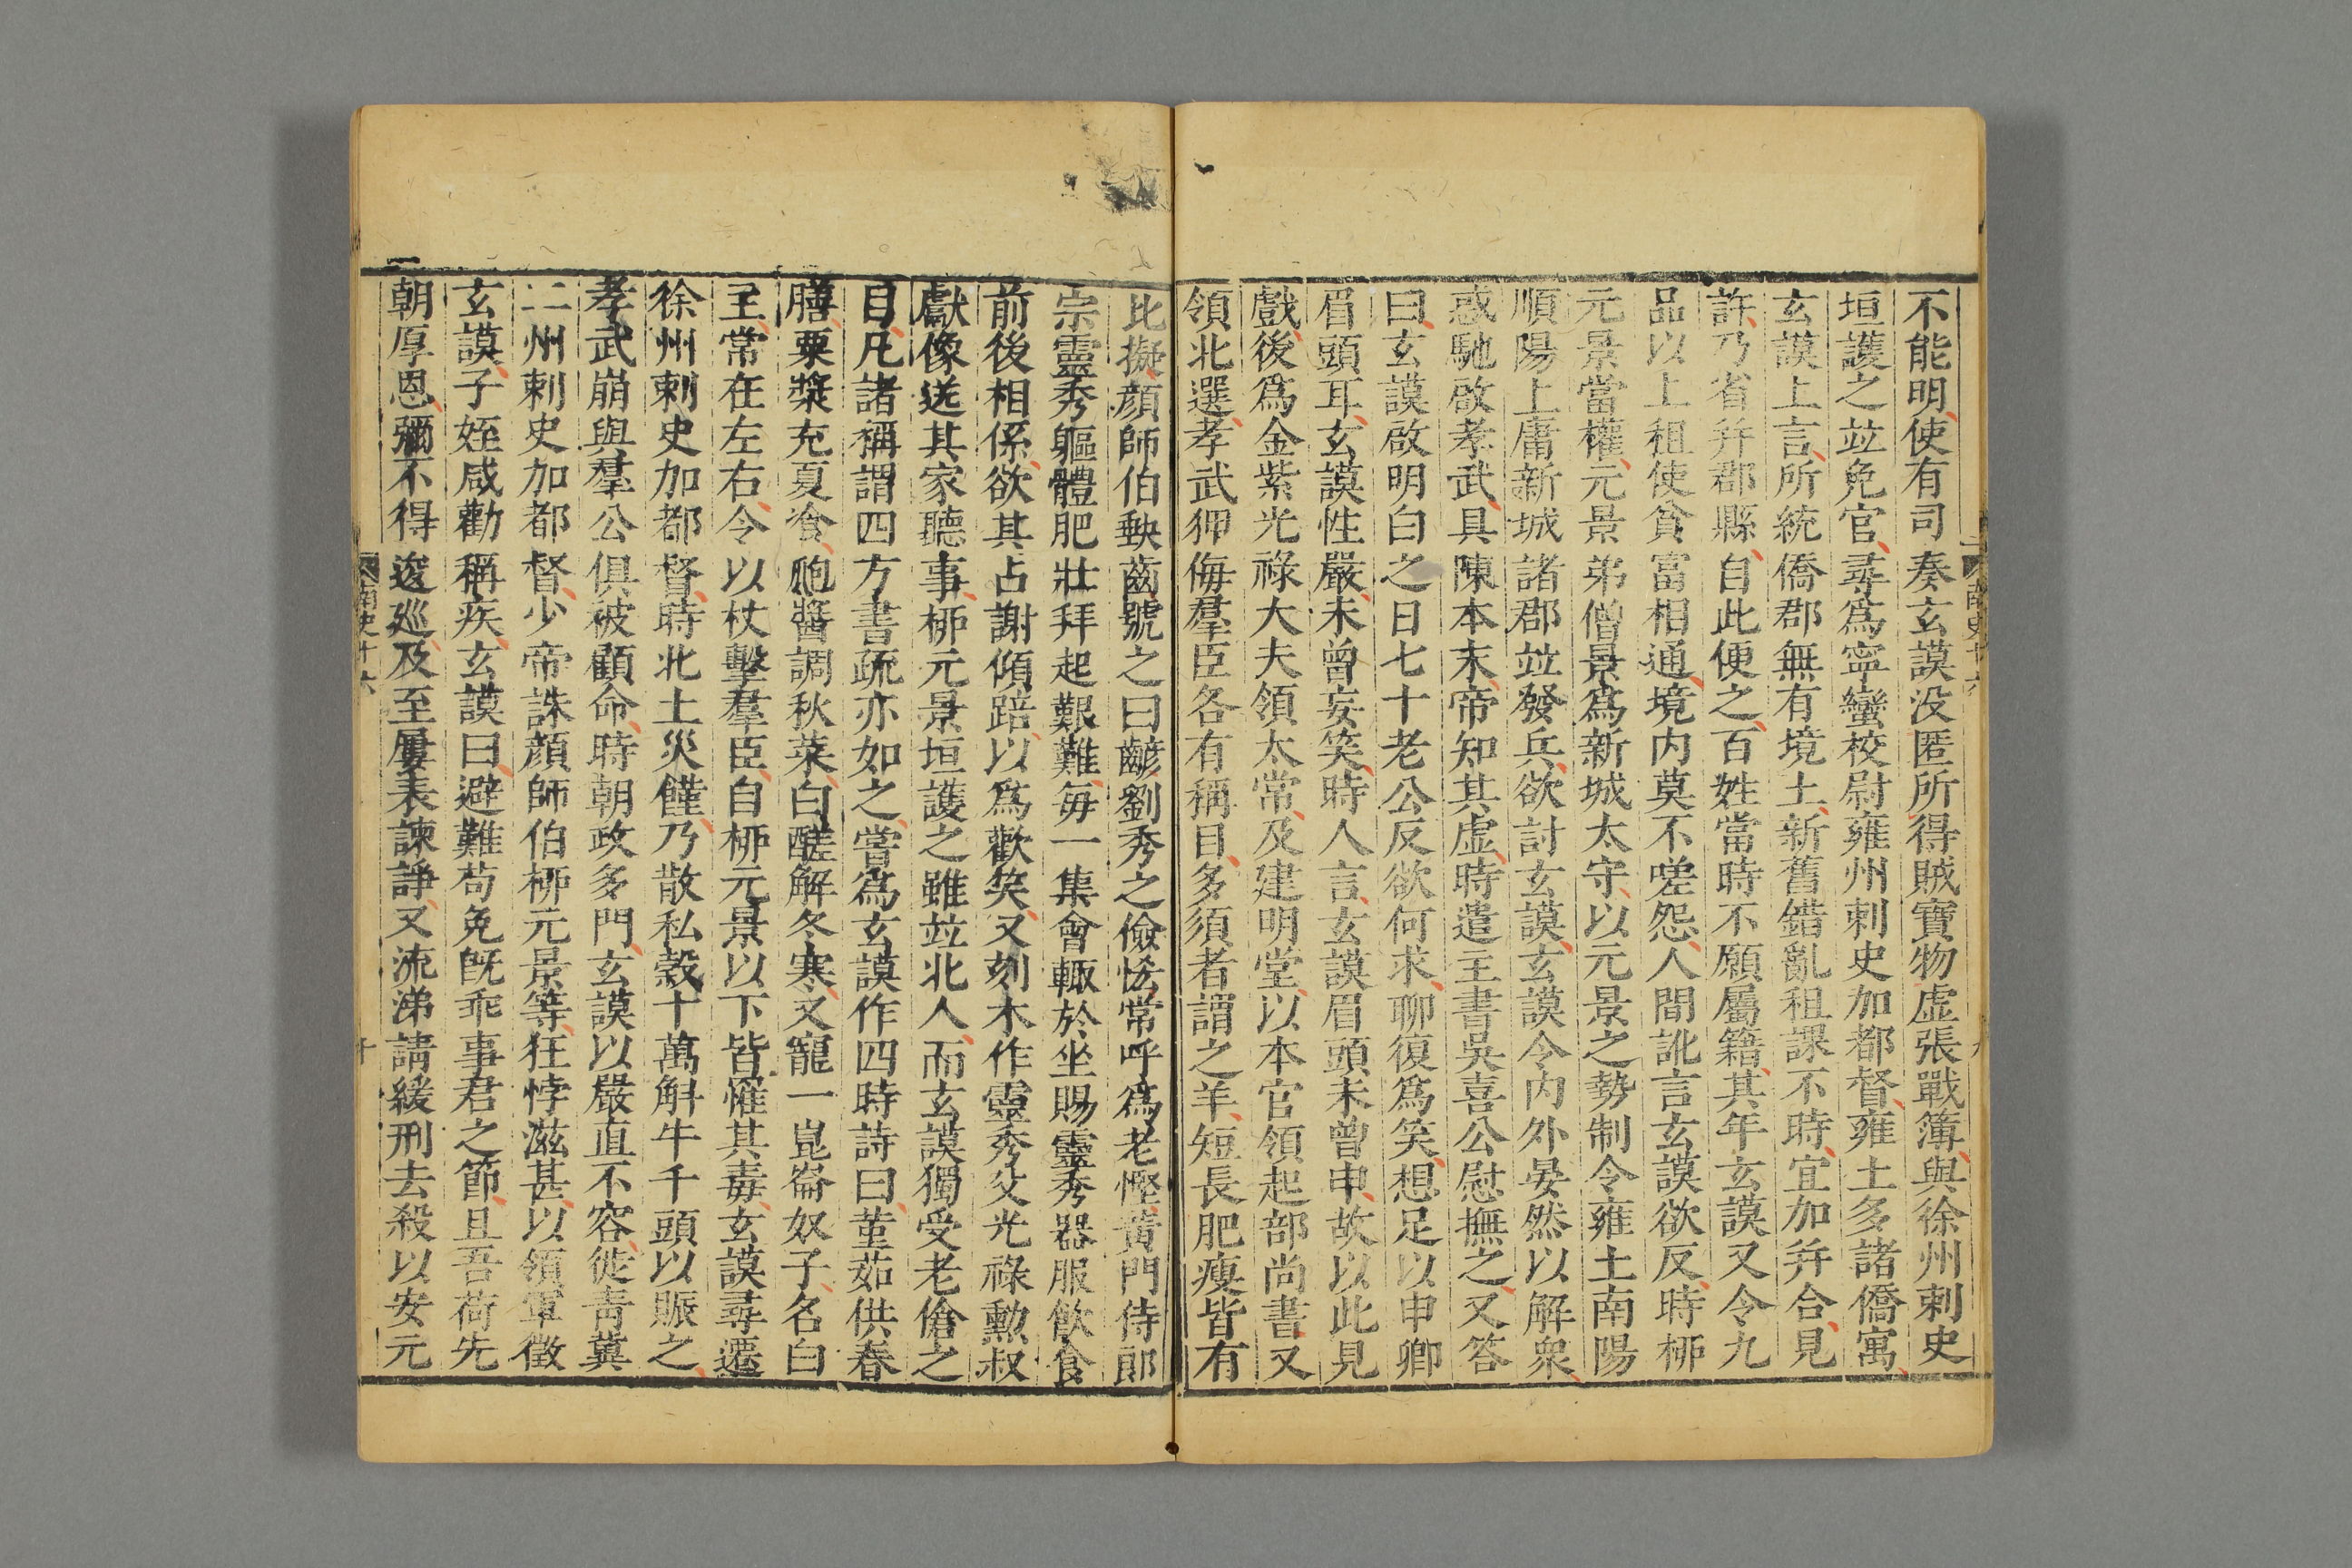 不能明使有司奏玄謨没匿所得賊寶物虚張戰簿與徐州刺史
垣護之竝免官尋爲寜蠻校尉雍州刺史加都督雍土多諸僑寓
玄謨上言所統僑郡無有境土新舊錯亂租課不時宜加并合見
許乃省并郡縣自此便之百姓當時不願屬籍其年玄謨又令九
品以上租使貧富相通境内莫不嗟怨人間訛言玄謨欲反時栁
元景當權元景弟僧景爲新城太守以元景之勢制令雍土南陽
順陽上庸新城諸郡竝發兵欲討玄謨玄謨令内外晏然以解衆
惑馳啟孝武具陳本末帝知其虚時遣主書吳喜公慰撫之又答
曰玄謨啟明白之日七十老公反欲何求聊復爲笑想足以申卿
眉頭耳玄謨性嚴未曾妄笑時人言玄謨眉頭未曾申故以此見
戲後爲金紫光祿大夫領太常及建明堂以本官領起部尚書又
領北選孝武狎侮羣臣各有稱目多須者謂之羊短長肥瘦皆有
比擬顔師伯䶕齒號之曰齴劉秀之儉悋常呼爲老慳黃門侍郎
宗靈秀軀體肥壯拜起艱難每一集會輙於坐賜靈秀器服飲食
前後相係欲其占謝傾踣以爲歡笑又刻木作靈秀父光祿勲叔
獻像送其家聽事栁元景垣護之雖竝北人而玄謨獨受老傖之
目凡諸稱謂四方書疏亦如之嘗爲玄謨作四時詩曰菫茹供春
膳粟漿充夏飡瓟醬調秋菜白醝解冬寒又寵一崑崙奴子名白
主常在左右令以杖擊羣臣自栁元景以下皆罹其毒玄謨尋遷
徐州刺史加都督時北土災饉乃散私穀十萬斛牛千頭以賑之
孝武崩與羣公俱被顧命時朝政多門玄謨以嚴直不容徙青冀
二州刺史加都督少帝誅顔師伯栁元景等狂悖滋甚以領軍徵
玄謨子姪咸勸稱疾玄謨曰避難苟免旣乖事君之節且吾荷先
朝厚恩彌不得逡巡及至屢表諫諍又流涕請緩刑去殺以安元
南史十六
十